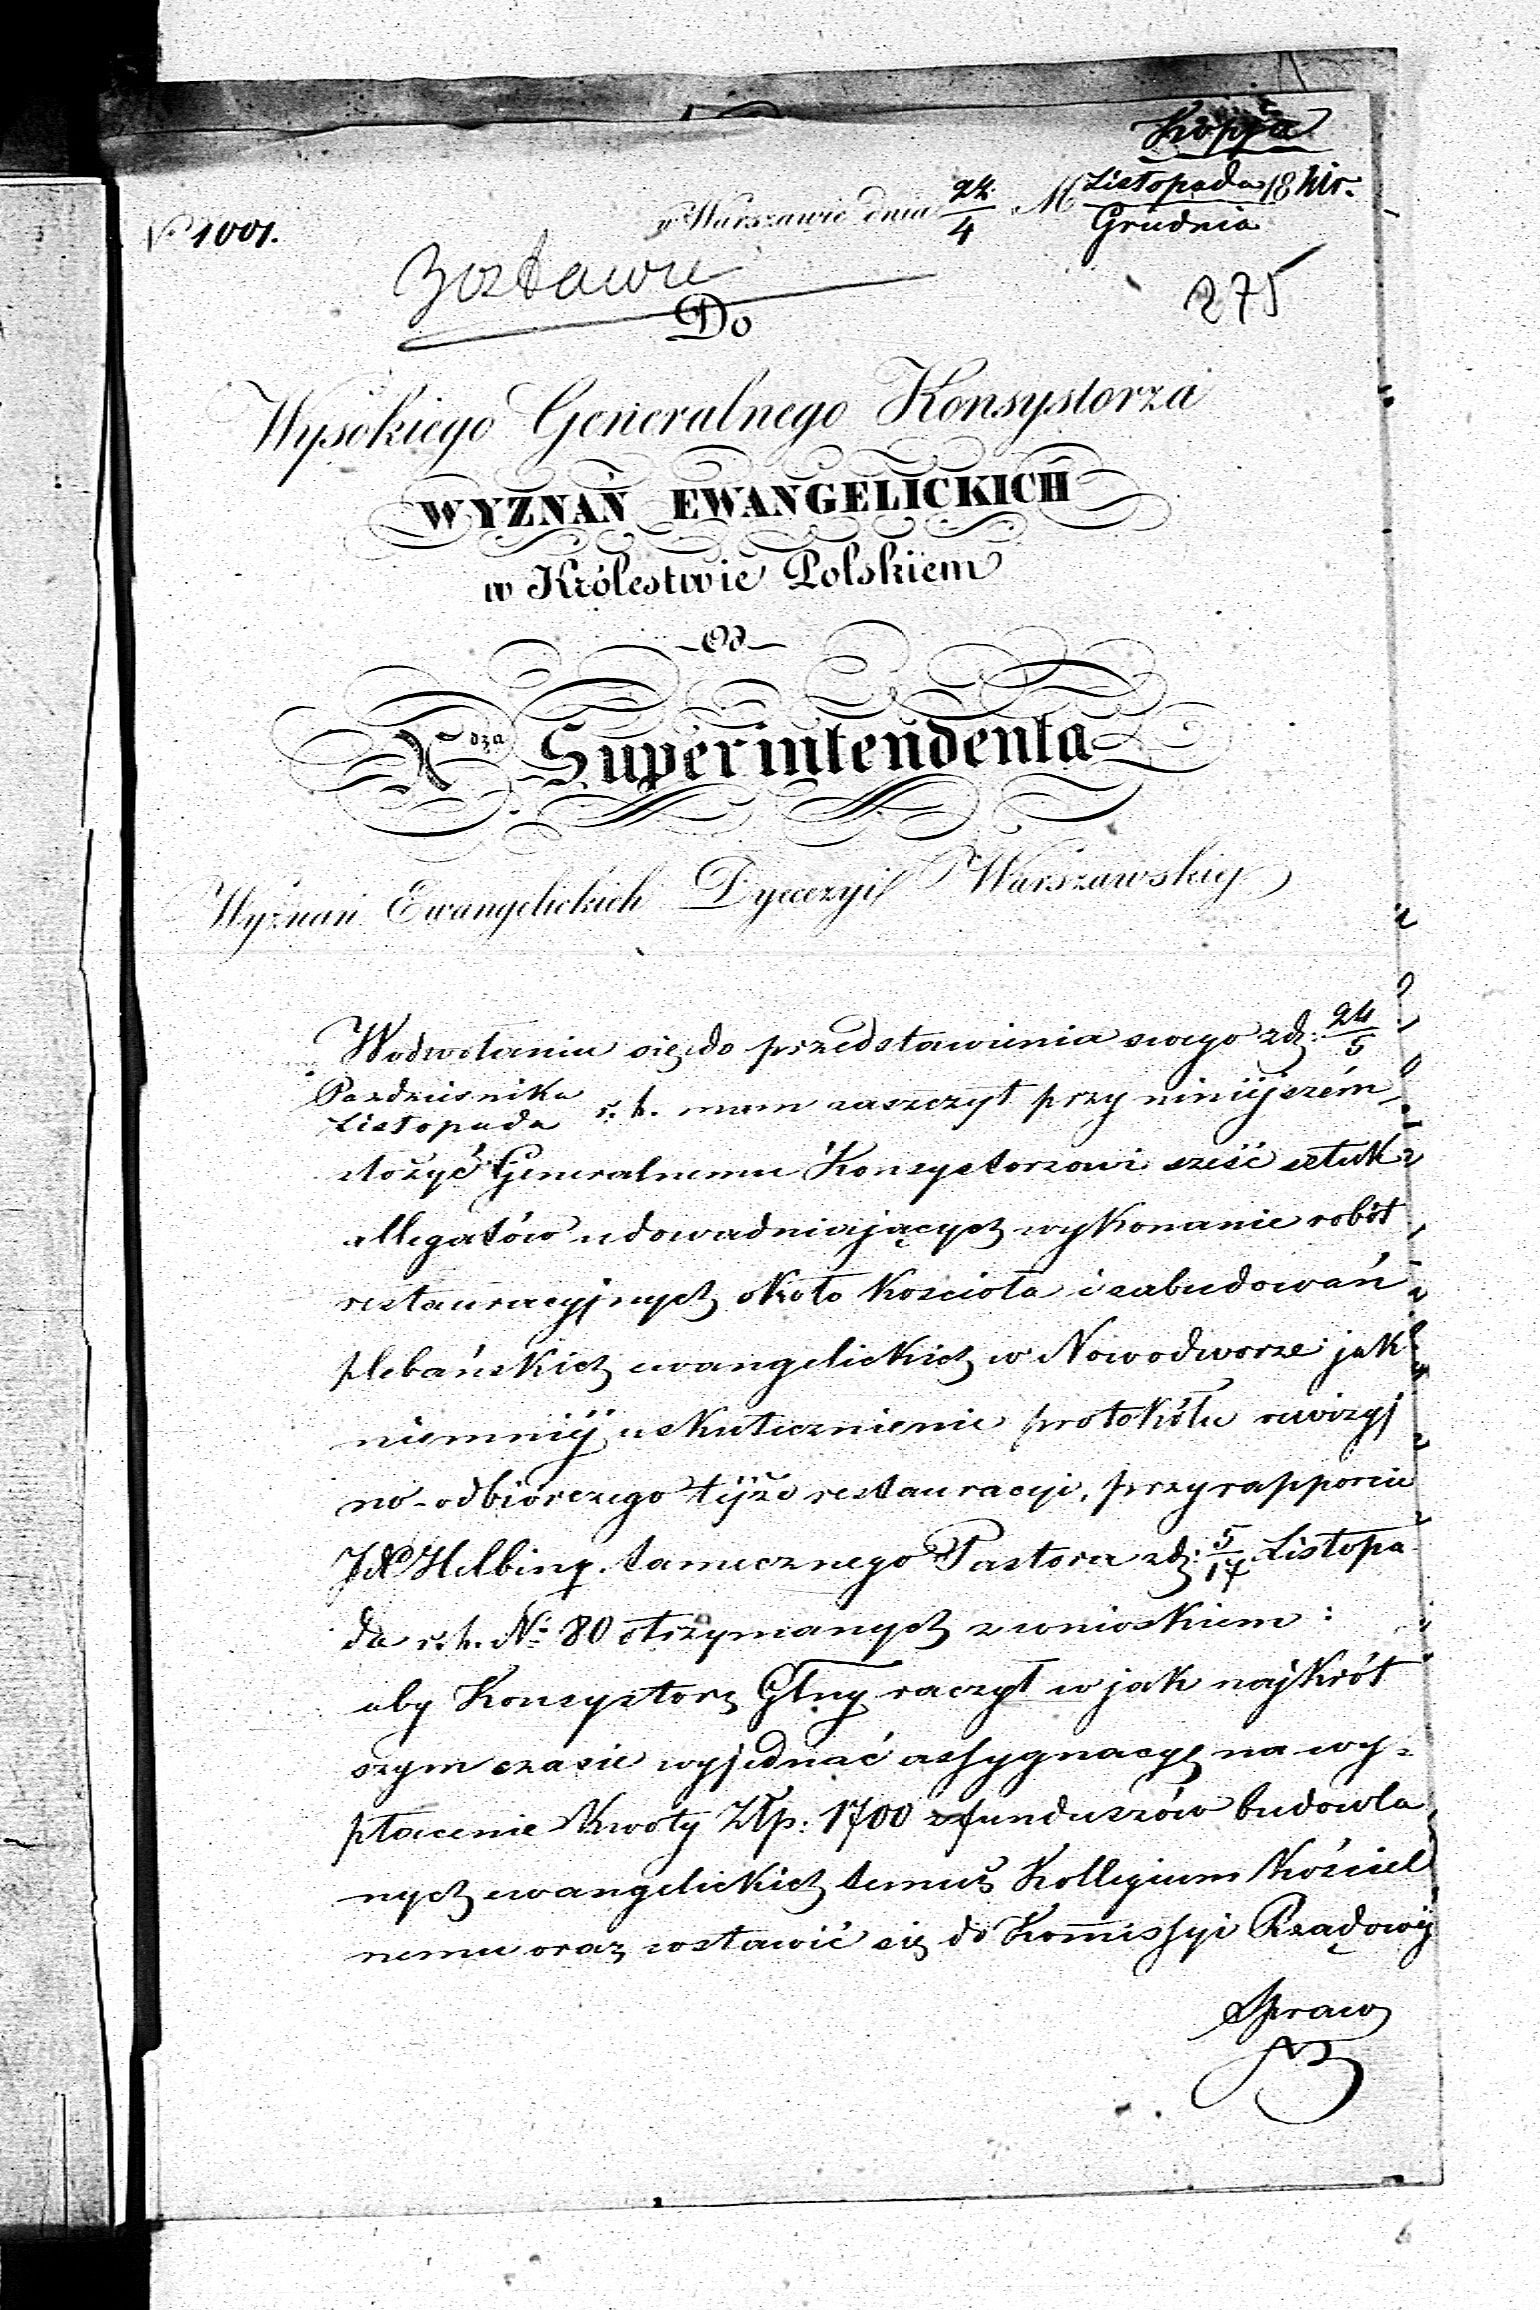 Kopja
w Warszawie dnia 22/4 M Listopada/Grudnia 18
No 1001.
Zostawie
275
Do
Wysokiego Generalnego Konsystorza
WYZNAŃ EWANGELICKICH
w Królestwie Polskiem
Od
Xdza Superintendenta
Wyznań Ewangelickich Dyecezyi Warszawskiey
W odwołaniu się do przedstawienia swego z d: 24/5
Pazdziernika/Listopada r. b. mam zaszczyt przy niniejszém
złożyć Generalnemu Konsystorzowi sześć sztuk
allegatów udowadniających wykonanie robót
restauracyjnych około Kościoła i zabudowań
plebańskich ewangelickich w Nowodworze jak
niemniéj uskutecznienie protokółu rewizyj
no-odbiorczego téjże restauracyi, przy rapporcie
JX Helbing tamecznego Pastora z d: 5/17 Listopa
da r. b. No 80 otrzymanych z wnioskiem:
aby Konsystorz Głny raczył w jak najkrót
szym czasie wyjednać assygnacyę na wy=
płacenie Kwoty Złp: 1700 z funduszów budowla
nych ewangelickich temuż Kollegium Kościel
nemu oraz wstawić się do Kommissyi Rządowéj
Spraw